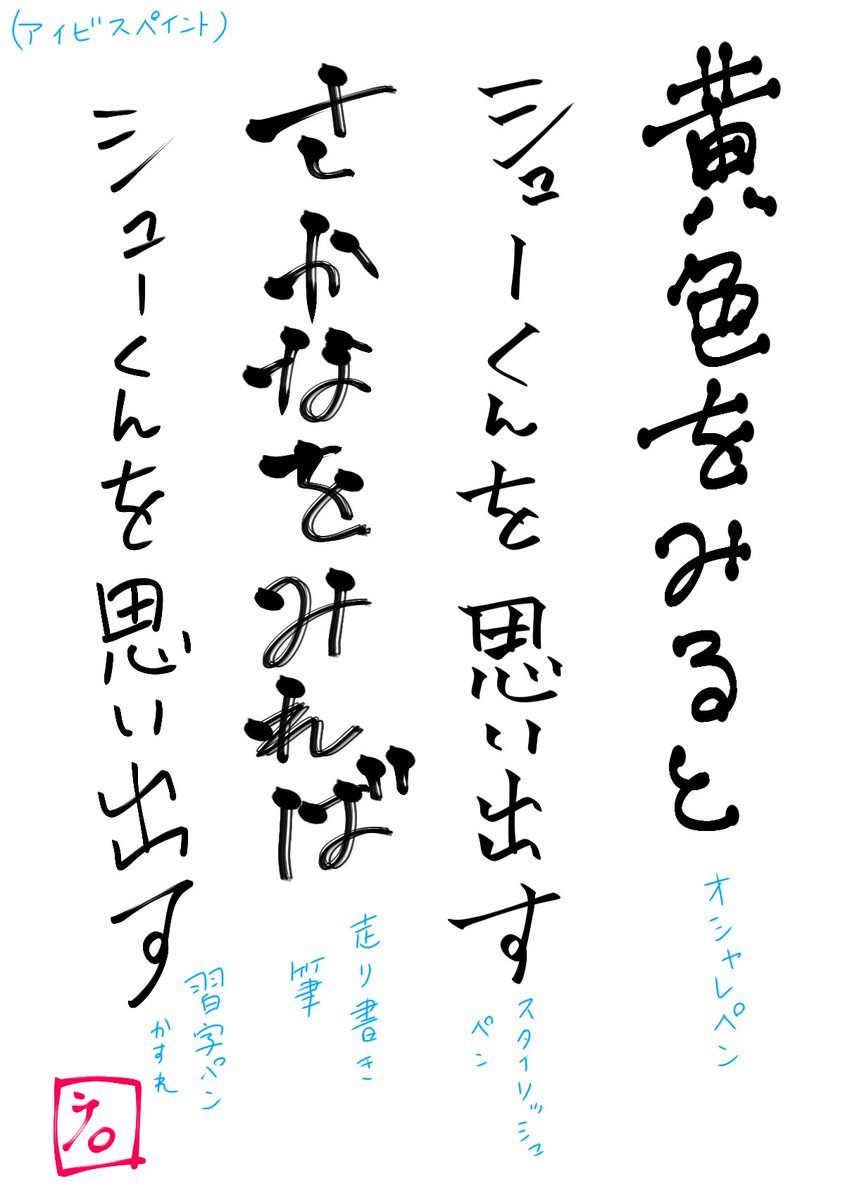 (アイビスペイント)
黄色をみると
オシャレペン
シューくんを思い出す
スタイリッシュ
ペン
さかなをみれば
走り書き
筆
シューくんを思い出す
習字ペン
かすれ
テ。